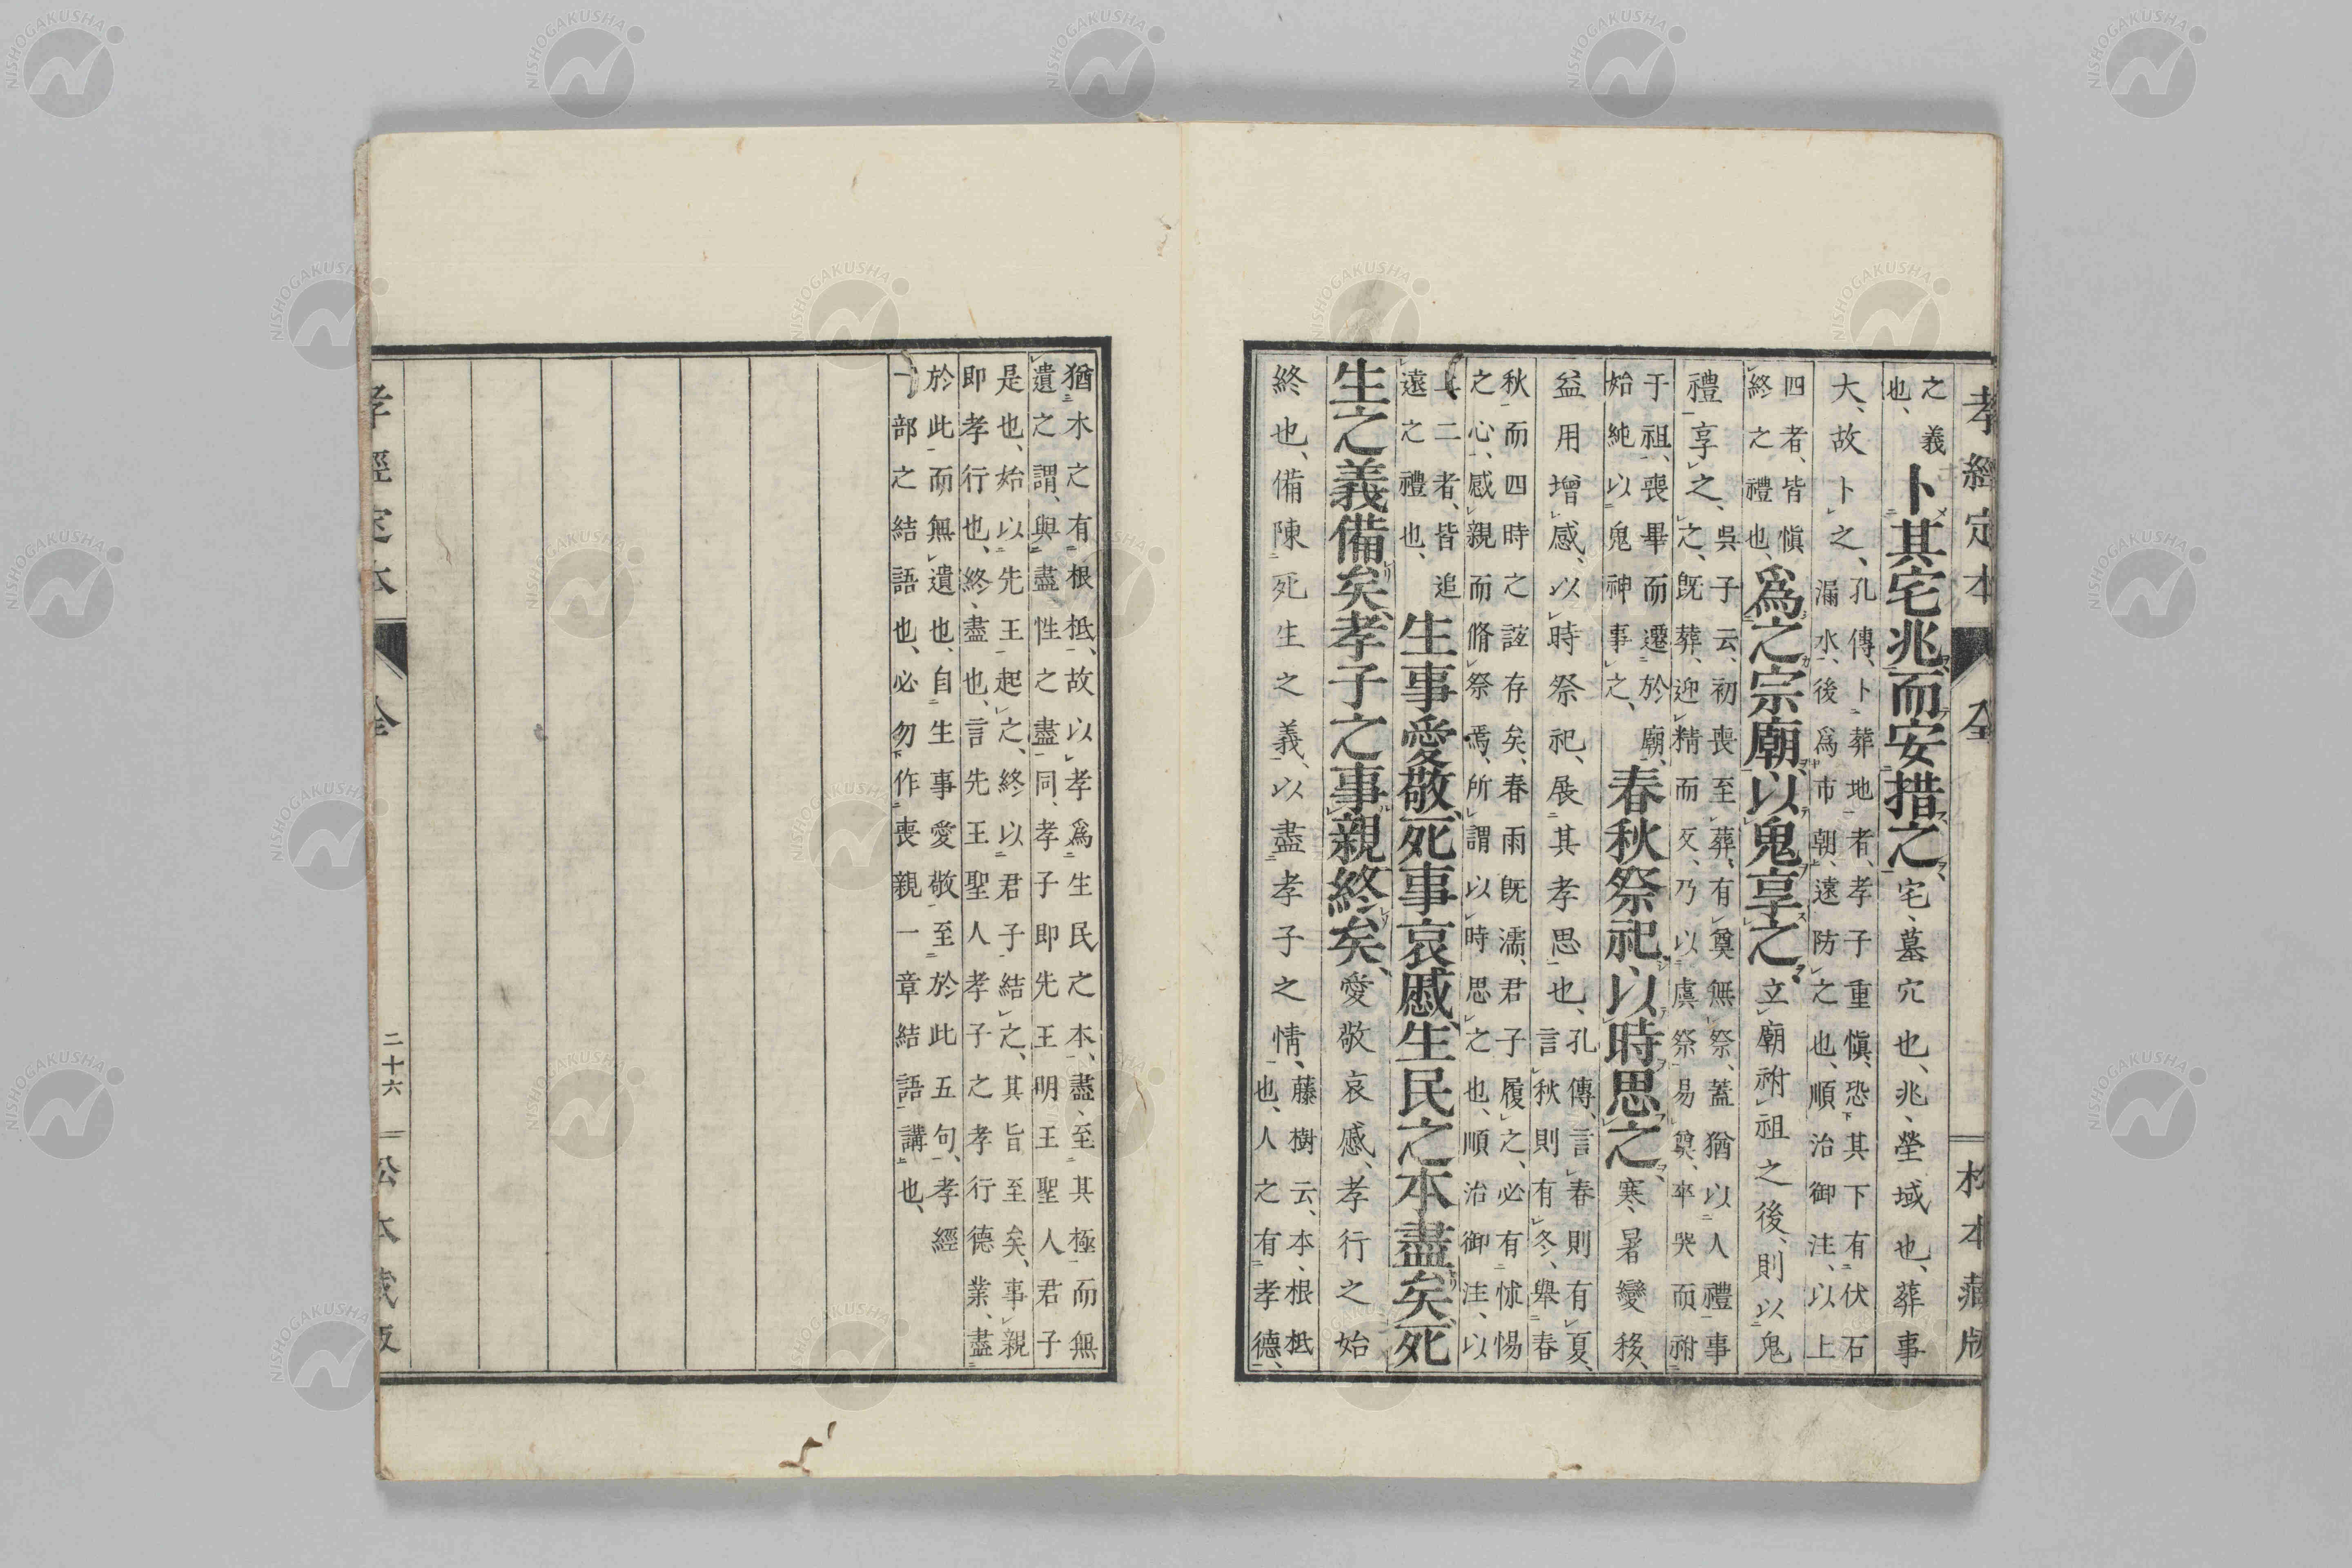 孝經定本 全 松本藏版
之義
也、
卜其宅兆而安措之、宅、墓穴也、兆、塋域也、葬事
大、故卜之、
孔傳、卜葬地者、孝子重愼、恐其下有伏石
漏水、後爲市朝、遠防之也、順治御注、以上
四者、皆愼
終之禮也、
爲之宗廟、以鬼享之、立廟祔祖之後、則以鬼
禮享之、
吳子云、初喪至葬、有奠無祭、蓋猶以人禮事
之、既葬、迎精而反、乃以虞祭易奠、卒哭而祔
于祖、喪畢而遷於廟、
始純以鬼神事之、
春秋祭祀、以時思之、寒暑變移、
益用增感、以時祭祀、展其孝思也、
孔傳、言春則有夏、
言秋則有冬、舉春
秋而四時之該存矣、春雨既濡、君子履之、必有怵惕
之心、感親而脩祭焉、所謂以時思之也、順治御注、以
上二者、皆追
遠之禮也、
生事愛敬、死事哀慼、生民之本盡矣、死
生之義備矣、孝子之事親終矣、愛敬哀慼、孝行之始
終也、備陳死生之義、以盡孝子之情、
藤樹云、本、根柢
也、人之有孝德、
猶木之有根柢、故以孝爲生民之本、盡、至其極而無
遺之謂、與盡性之盡同、孝子即先王明王聖人君子
是也、始以先王起之、終以君子結之、其旨至矣、事親
即孝行也、終、盡也、言先王聖人孝子之孝行德業、盡
於此而無遺也、自生事愛敬至於此五句、孝經
一部之結語也、必勿作喪親一章結語講也、
孝經定本 全 二十六 松本藏版